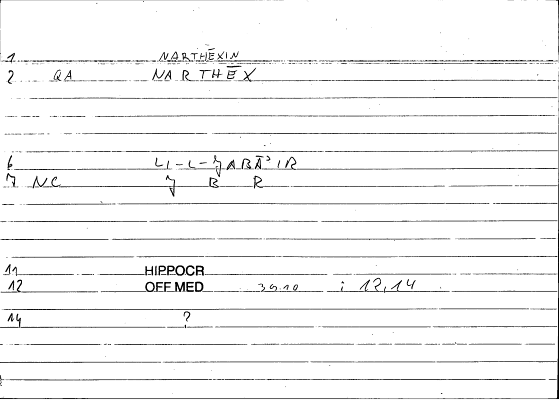 1 NARTHĒXIN
2 QA NARTHĒX
6 LI-L-JABĀʾIR
7 NC J B R
11 HIPPOCR
12 OFF MED : 12,14
14 ?